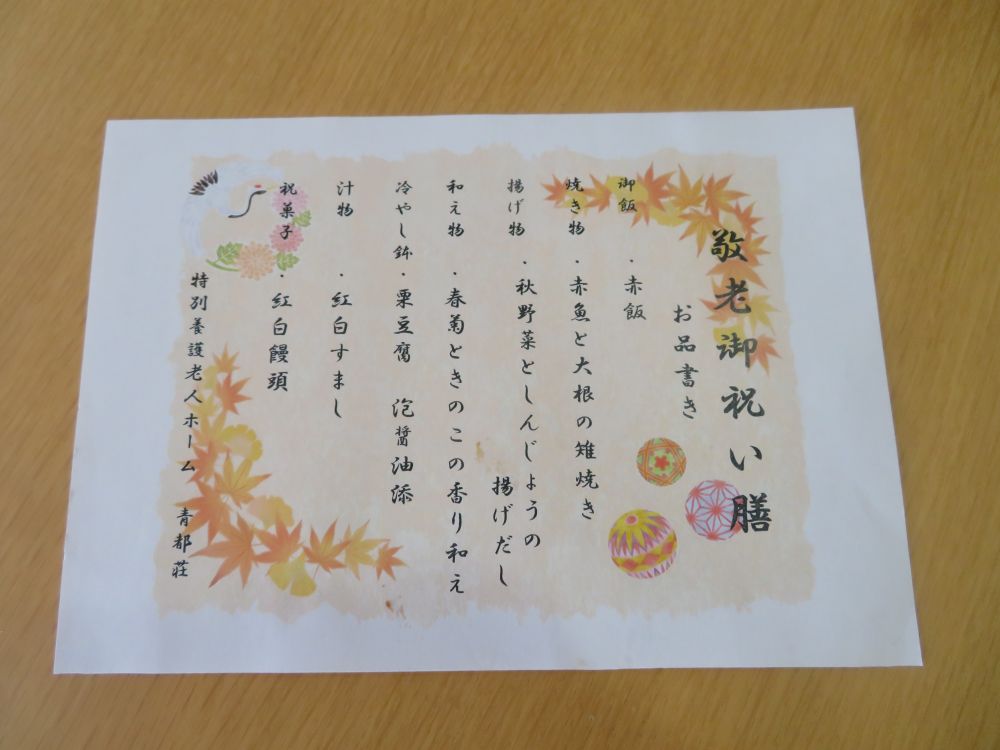 敬老御祝い膳
お品書き
御飯 ・赤飯
焼き物 ・赤魚と大根の雉焼き
揚げ物 ・秋野菜としんじょうの
揚げだし
和え物 ・春菊ときのこの香り和え
冷やし鉢・栗豆腐 泡醤油添
汁物 ・紅白すまし
祝菓子 ・紅白饅頭
特別養護老人ホーム 青都荘